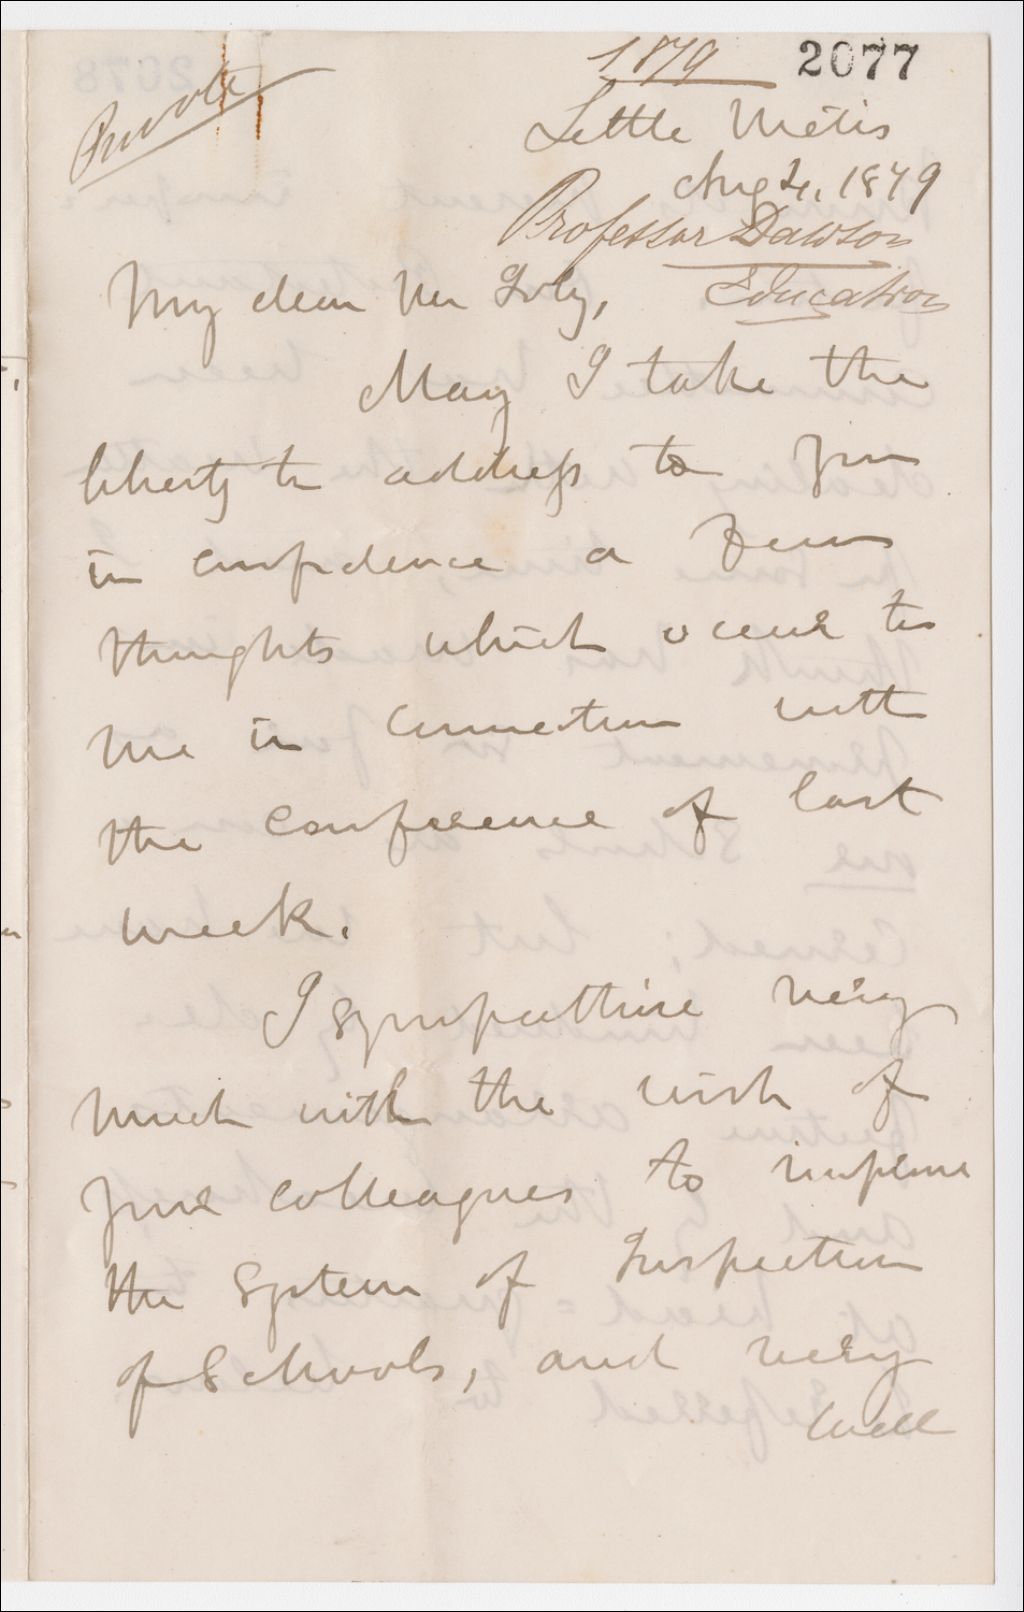 1879 2077
Private
Little Métis
Aug 4, 1879
Professor Dawson
Education
My dear Mr Joly,
May I take the
liberty to address to you
in confidence a few
thoughts which occur to
me in connection with
the conference of last
week.
I sympathise very
much with the wish of
your colleagues to improve
the system of Inspection
of Schools, and very
well